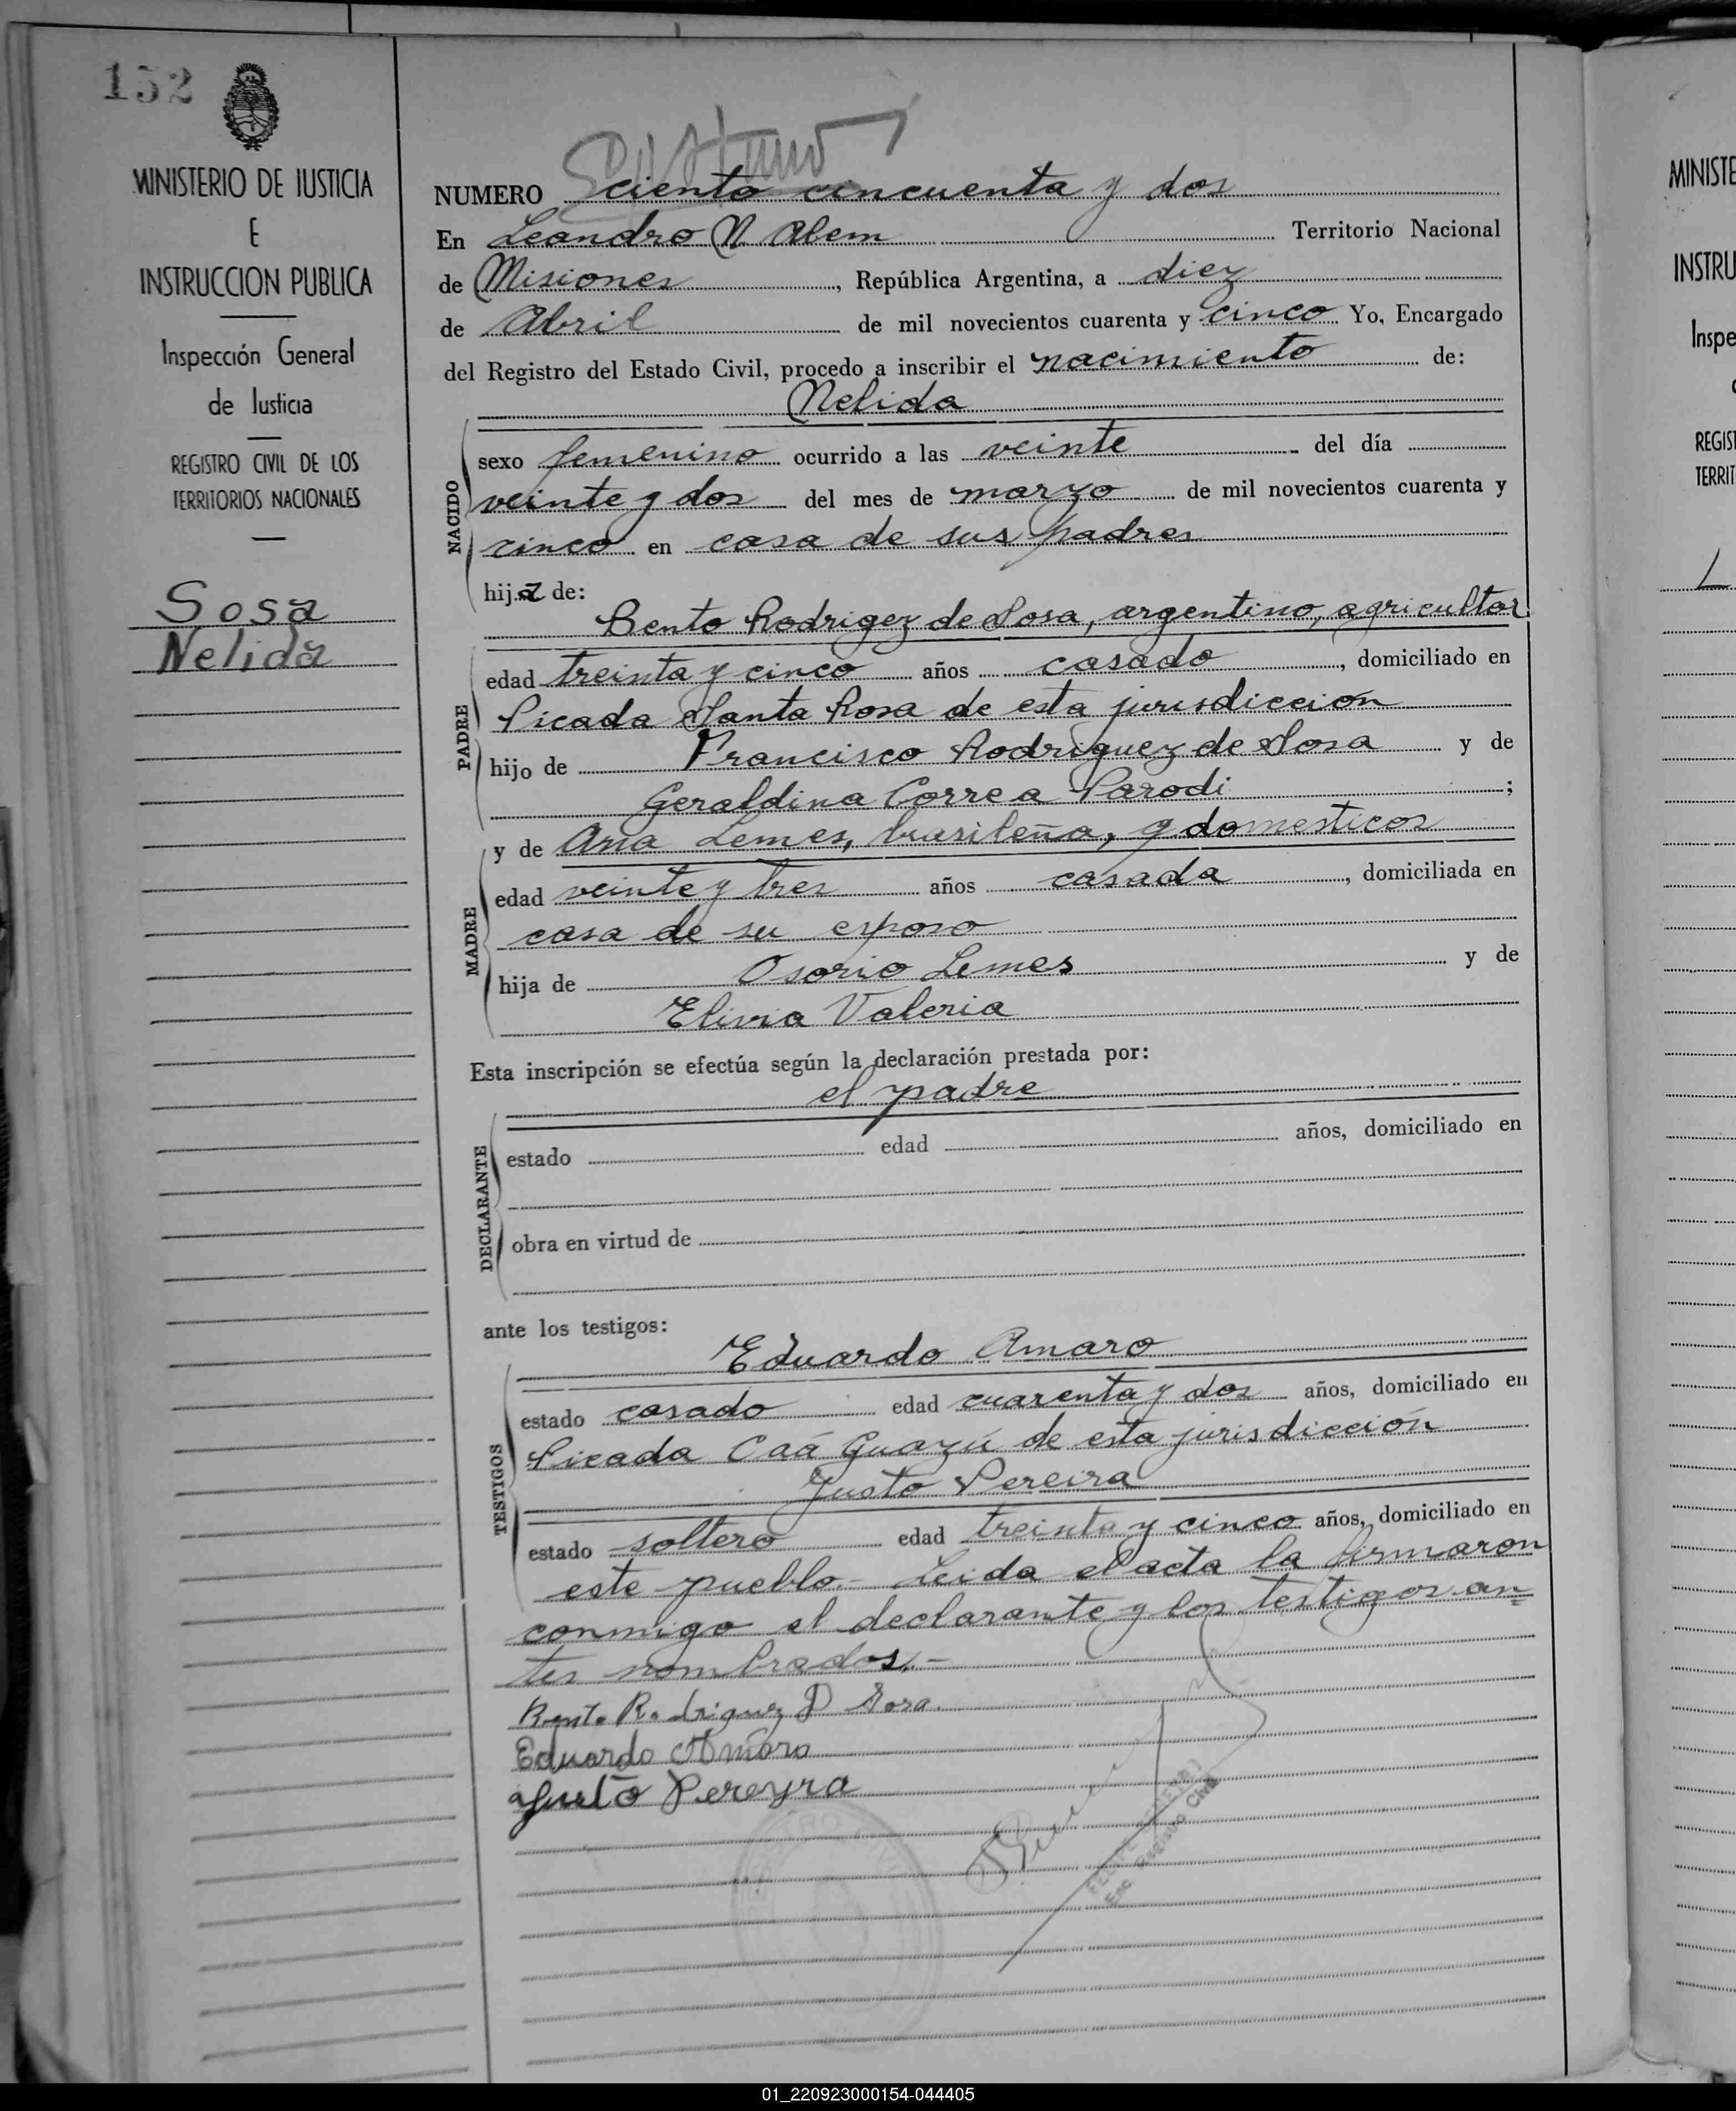 152
MINISTERIO DE JUSTICIA
E
INSTRUCCION PUBLICA
Inspección General
de Justicia
REGISTRO CIVIL DE LOS
TERRITORIOS NACIONALES
Sosa
Nelida
NUMERO ciento cincuenta y dos
En Leandro N. Alem Territorio Nacional
de Misiones, República Argentina, a diez
de Abril de mil novecientos cuarenta y cinco Yo, Encargado
del Registro del Estado Civil, procedo a inscribir el nacimiento de:
Nelida
NACIDO
sexo femenino ocurrido a las veinte del día
veinte y dos del mes de marzo de mil novecientos cuarenta y
cinco en casa de sus padres
hija de:
Bento Rodrigez de Sosa, argentino, agricultor
PADRE
edad treinta y cinco años casado, domiciliado en
Picada Santa Rosa de esta jurisdicción
hijo de Francisco Rodriguez de Sosa y de
Geraldina Correa Parodi;
y de Ana Lemes, brasileña, q domesticos
MADRE
edad veinte y tres años casada, domiciliada en
casa de su esposo
hija de Osorio Lemes y de
Elivia Valeria
Esta inscripción se efectúa según la declaración prestada por:
el padre
DECLARANTE
estado edad años, domiciliado en
obra en virtud de
ante los testigos:
Eduardo Amaro
TESTIGOS
estado casado edad cuarenta y dos años, domiciliado en
Picada Caá Guazú de esta jurisdicción
Justo Pereira
estado soltero edad treinta y cinco años, domiciliado en
este pueblo.- Leida el acta la firmaron
conmigo el declarante y los testigos an=
tes nombrados.-
Bento Rodriguez D Sosa.
Eduardo Amaro
Justo Pereyra
Enc. Registro Civil
MINISTE
INSTRU
Inspe
REGIST
TERRIT
L
01_220923000154-044405